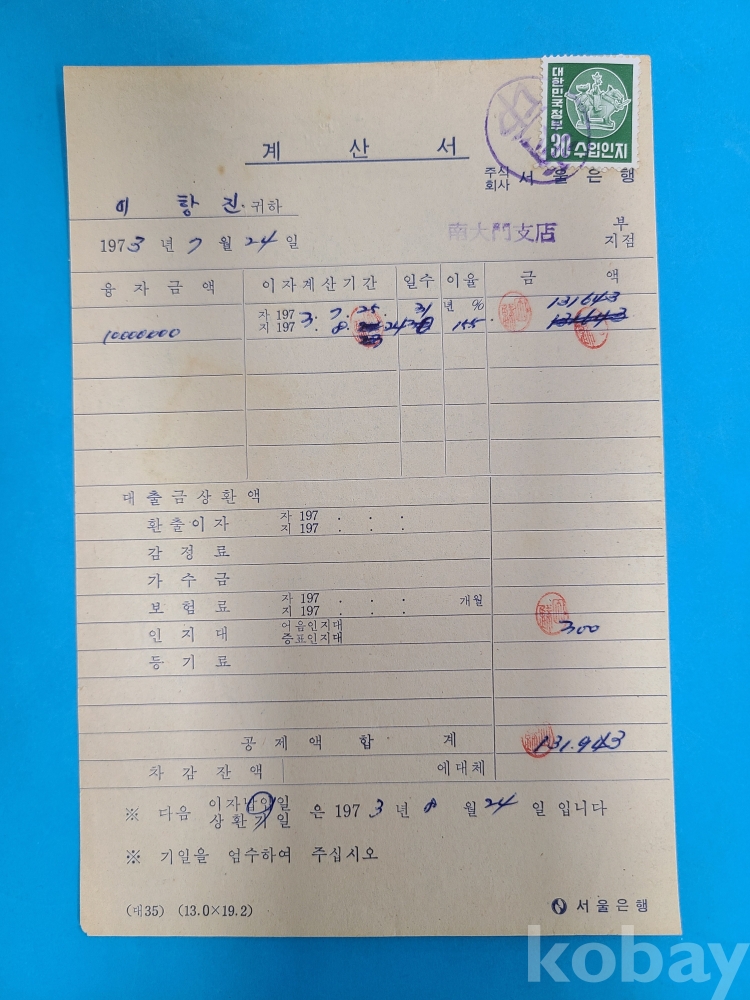 대한민국정부
30 수입인지
계 산 서
주식회사 서울은행
이 창 진 귀하
南大門支店 부 지점
1973 년 7 월 24 일
융자금액 이자계산기간 일수 이율 금 액
자 197 3. 7. 25 31 년 % 131643
10000000 지 197 3. 8. 24 15.5 131643
대출금상환액
환출이자 자 197 . . .
지 197 . . .
감정료
가수금
보험료 자 197 . . . 개월
지 197 . . .
인지대 어음인지대
증표인지대 300
등기료
공제액 합 계 131.943
차감잔액 에대체
※ 다음 이자납입일
상환기일 은 197 3 년 8 월 24 일 입니다
※ 기일을 엄수하여 주십시오
(대35) (13.0×19.2) 서울은행
kobay